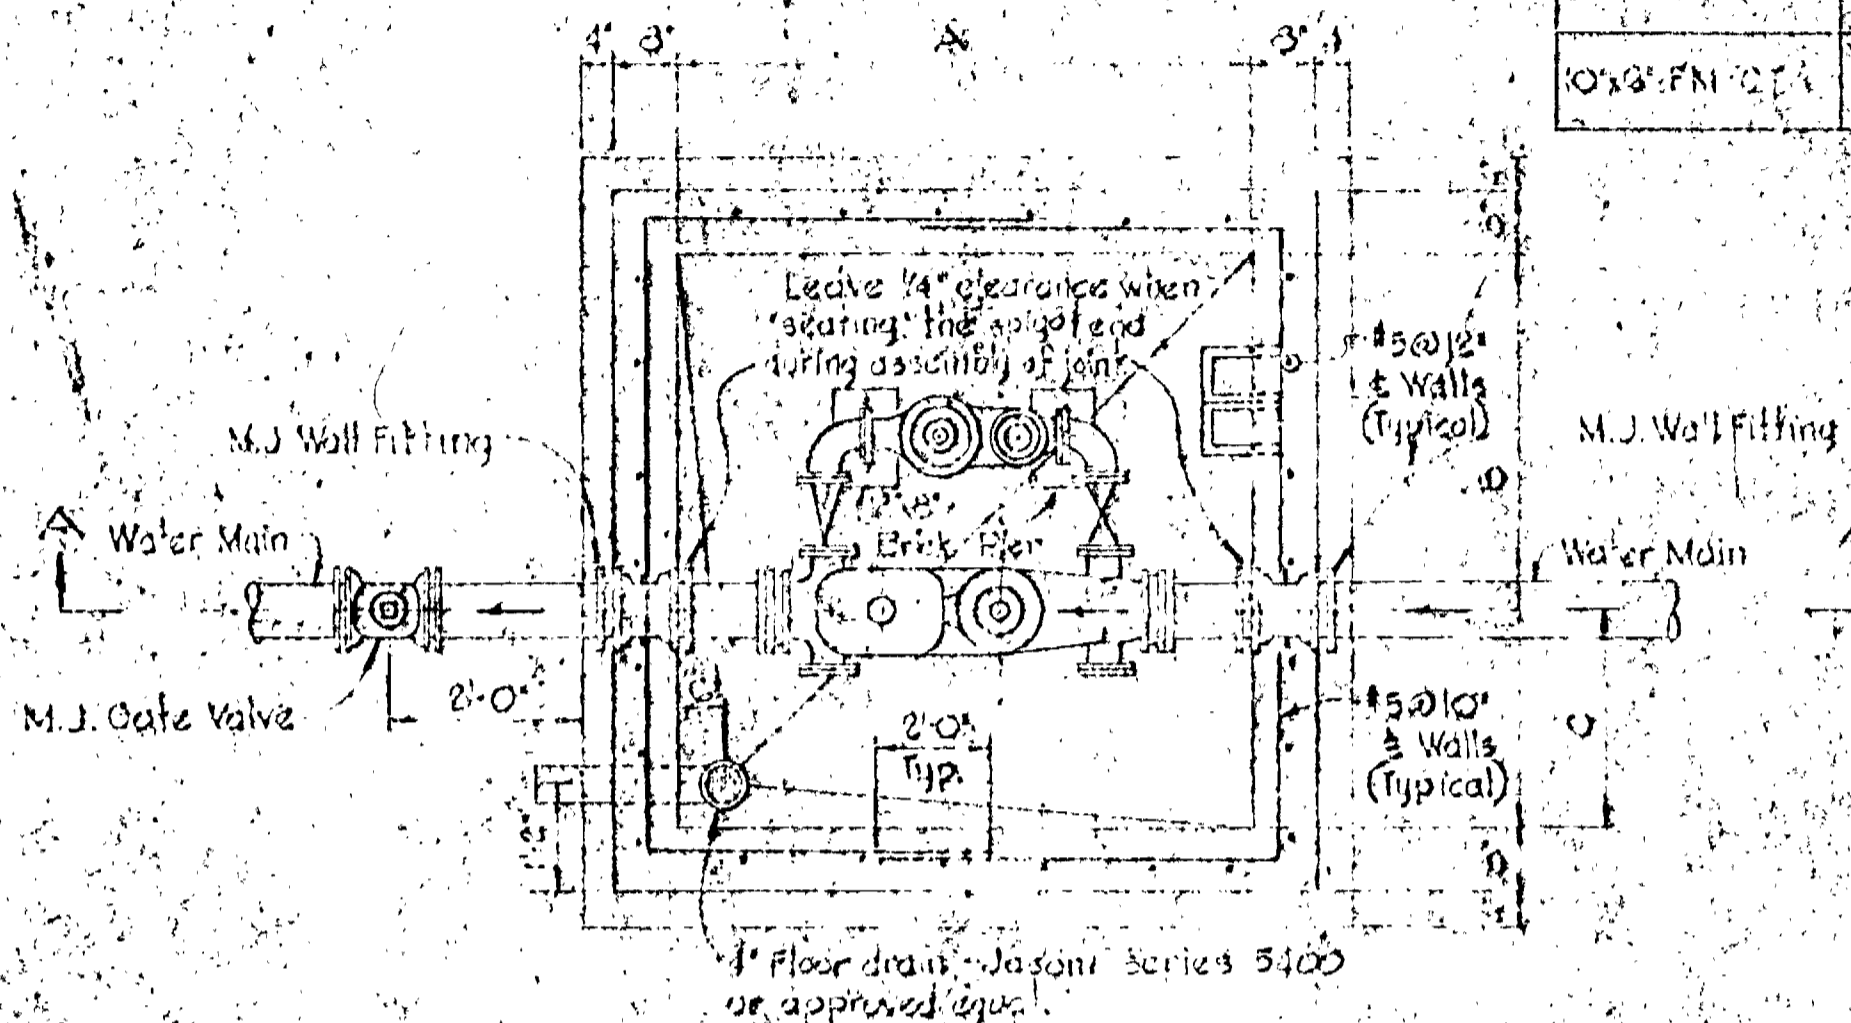 4" 8" A 8" 4"
Leave 1/4" clearance when
seating the spigot end
during assembly of joint
#5@12"
Walls
(Typical)
M.J. Wall Fitting
M.J. Wall Fitting
A
Water Main
Brick Pier
Water Main
M.J. Gate Valve
2'-0"
2'-0"
Typ.
#5@10"
Walls
(Typical)
C
4" Floor drain, Series 5400
or approved equal.